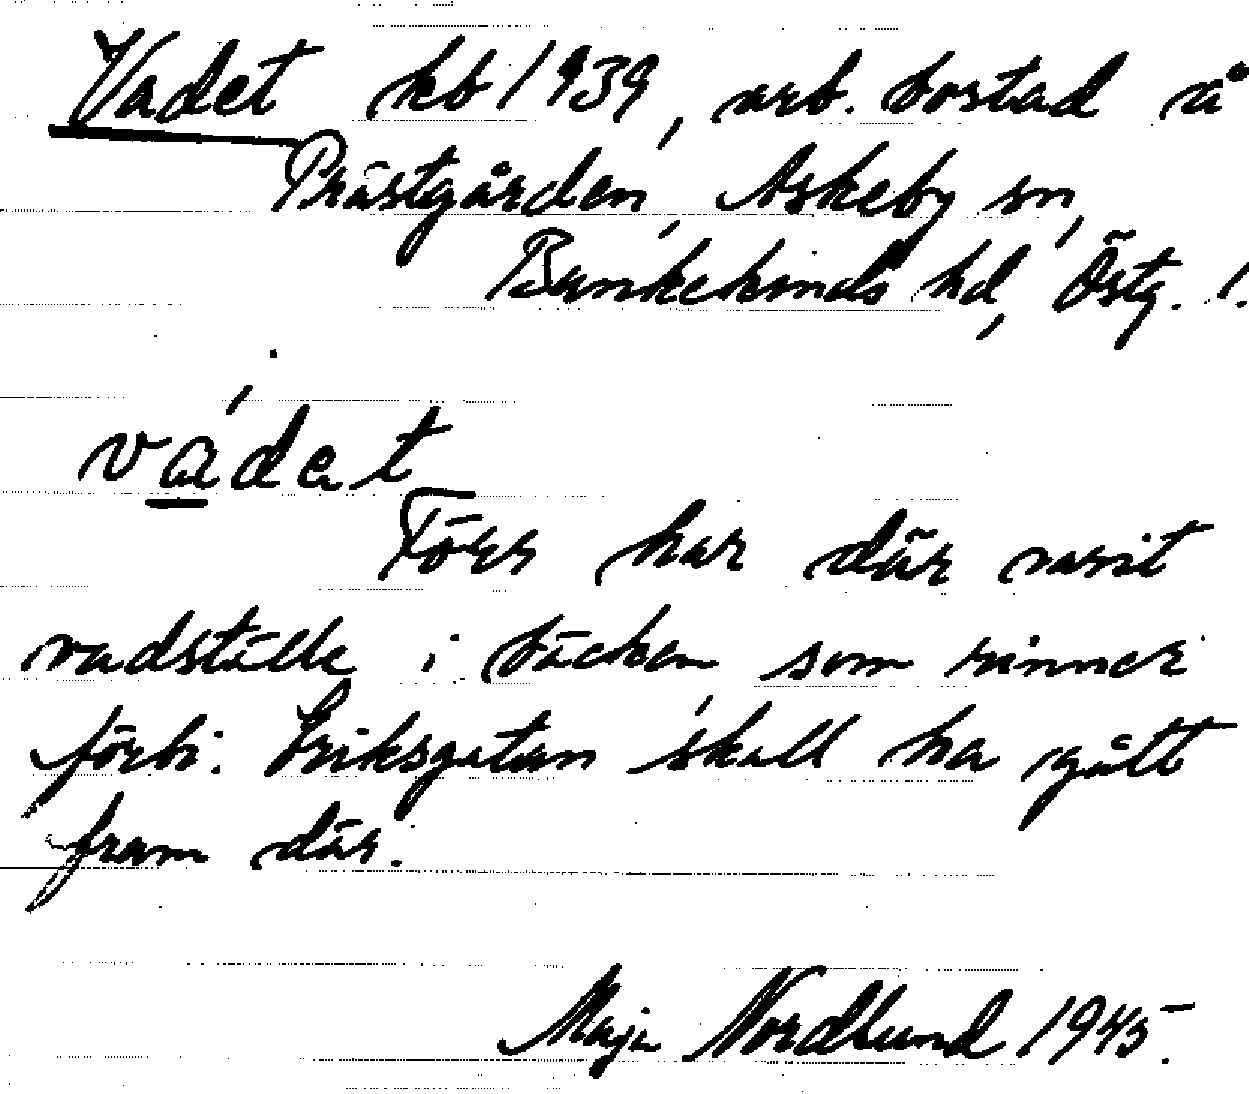 Vadet kb 1939, arb. bostad å
Prästgården, Askeby sn,
Bankekinds hd, Östg. l.
va'det
Förr har där varit
vadställe i bäcken som rinner
förbi. Eriksgatan skall ha gått
fram där.
Maja Nordlund 1945.